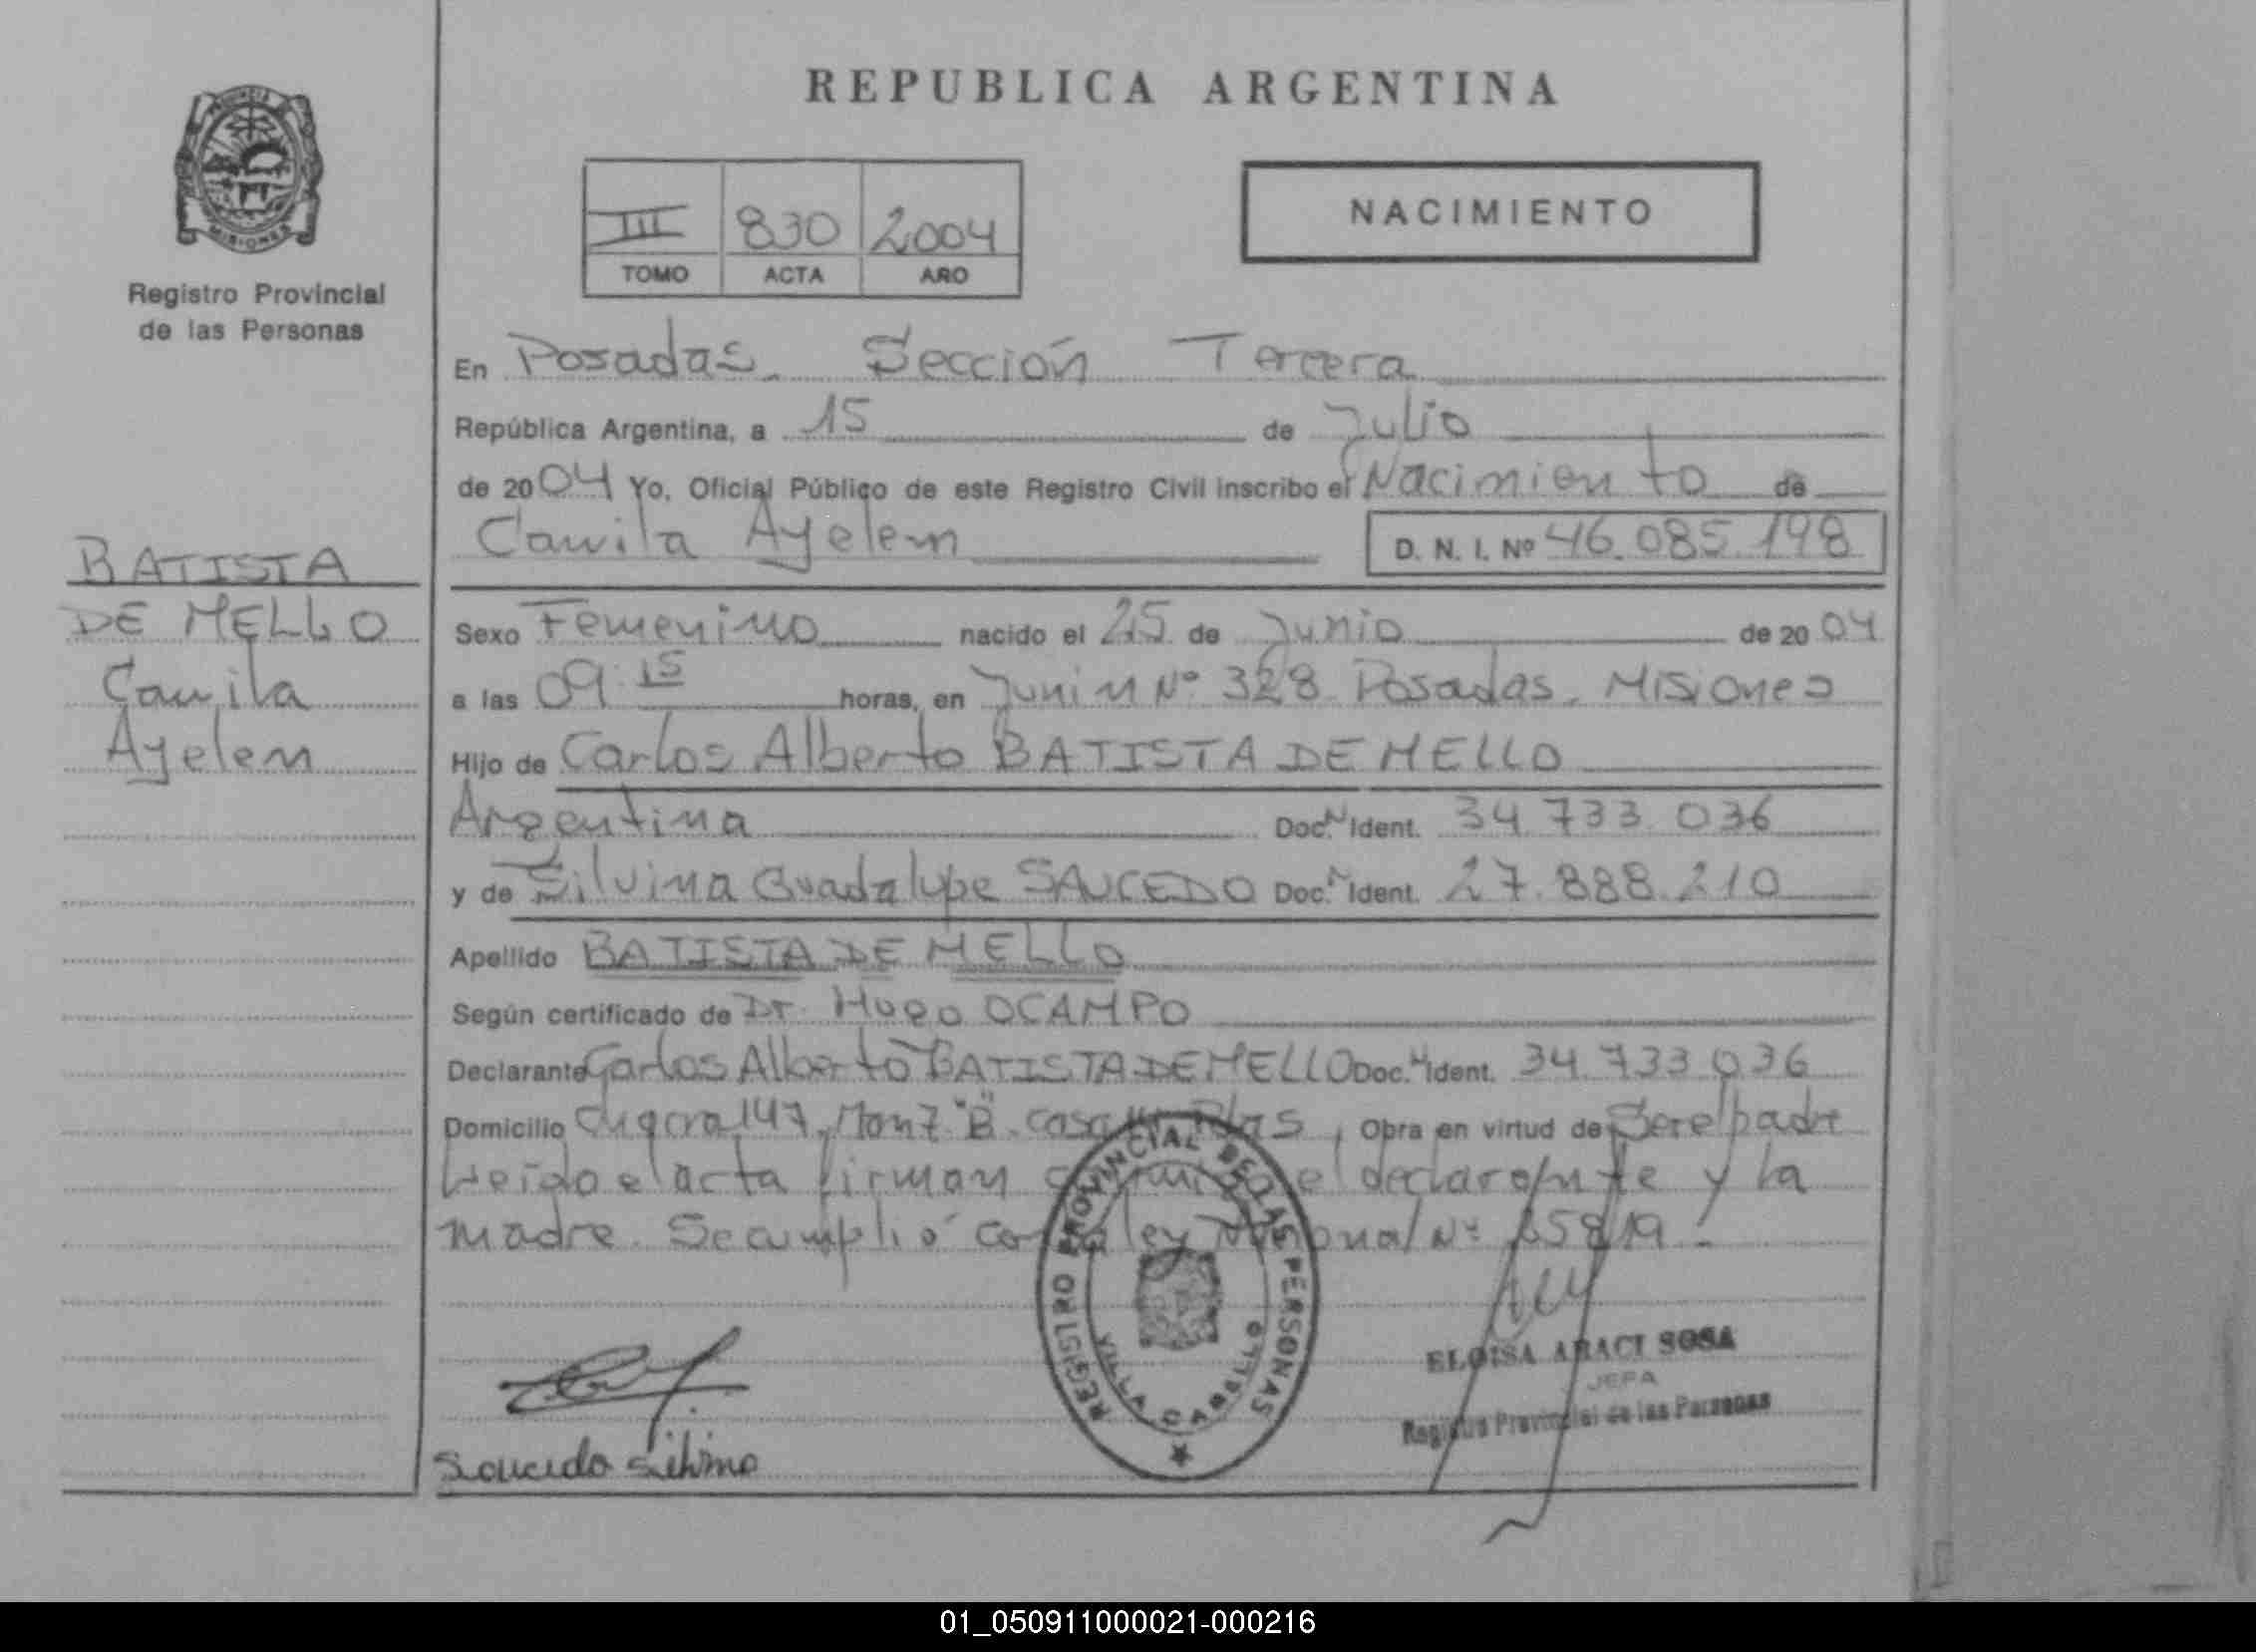 REPUBLICA ARGENTINA
PROVINCIA
MISIONES
Registro Provincial
de las Personas
III 830 2004
TOMO ACTA AÑO
NACIMIENTO
En Posadas. Sección Tercera
República Argentina, a 15 de Julio
de 2004 Yo, Oficial Público de este Registro Civil inscribo el Nacimiento de
Camila Ayelem D. N. I. Nº 46.085.198
BATISTA
DE MELLO
Camila
Ayelem
Sexo Femenino nacido el 25 de Junio de 2004
a las 09:15 horas, en Junin Nº 328 Posadas. Misiones
Hijo de Carlos Alberto BATISTA DE MELLO
Argentina Doc. N Ident. 34 733 036
y de Silvina Guadalupe SAUCEDO Doc. N Ident. 27.888.210
Apellido BATISTA DE MELLO
Según certificado de Dr. Hugo OCAMPO
Declarante Carlos Alberto BATISTA DE MELLO Doc. N Ident. 34.733 036
Domicilio Chacra 147, Manz "B" casa Pdas, Obra en virtud de Ser el padre
Leida el acta firman el declarante y la
madre. Se cumplió con ley Nacional Nº
REGISTRO PROVINCIAL DE LAS PERSONAS
VILLA CABELLO
ELOISA ARACI SOSA
JEFA
Registro Provincial de las Personas
Saucedo Silvina
01_050911000021-000216